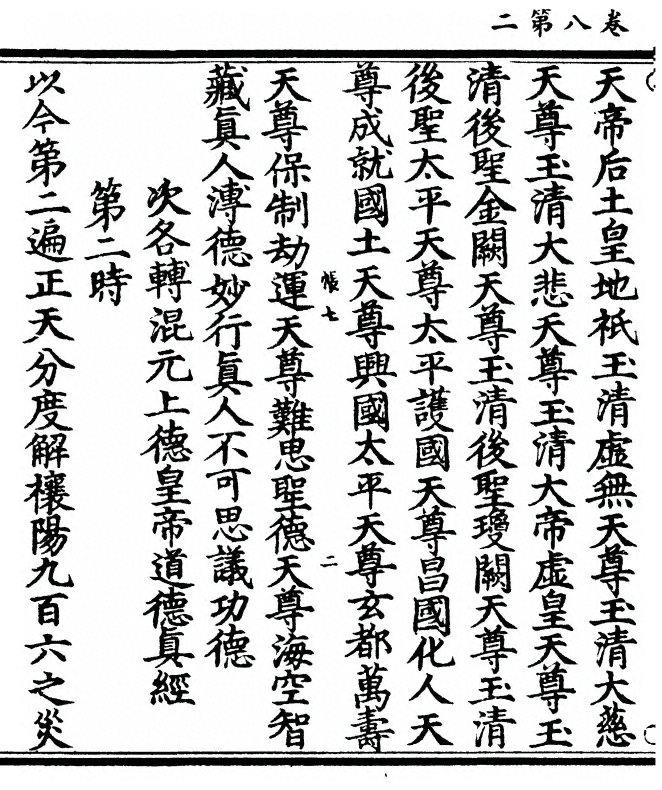 卷八第二
天帝后土皇地祇玉清虛無天尊玉清大慈
天尊玉清大悲天尊玉清大帝虛皇天尊玉
清後聖金闕天尊玉清後聖瓊闕天尊玉清
後聖太平天尊太平護國天尊昌國化人天
尊成就國土天尊興國太平天尊玄都萬壽
悵七
二
天尊保制劫運天尊難思聖德天尊海空智
藏真人溥德妙行真人不可思議功德
次各轉混元上德皇帝道德真經
第二時
以今第二遍正天分度解禳陽九百六之災